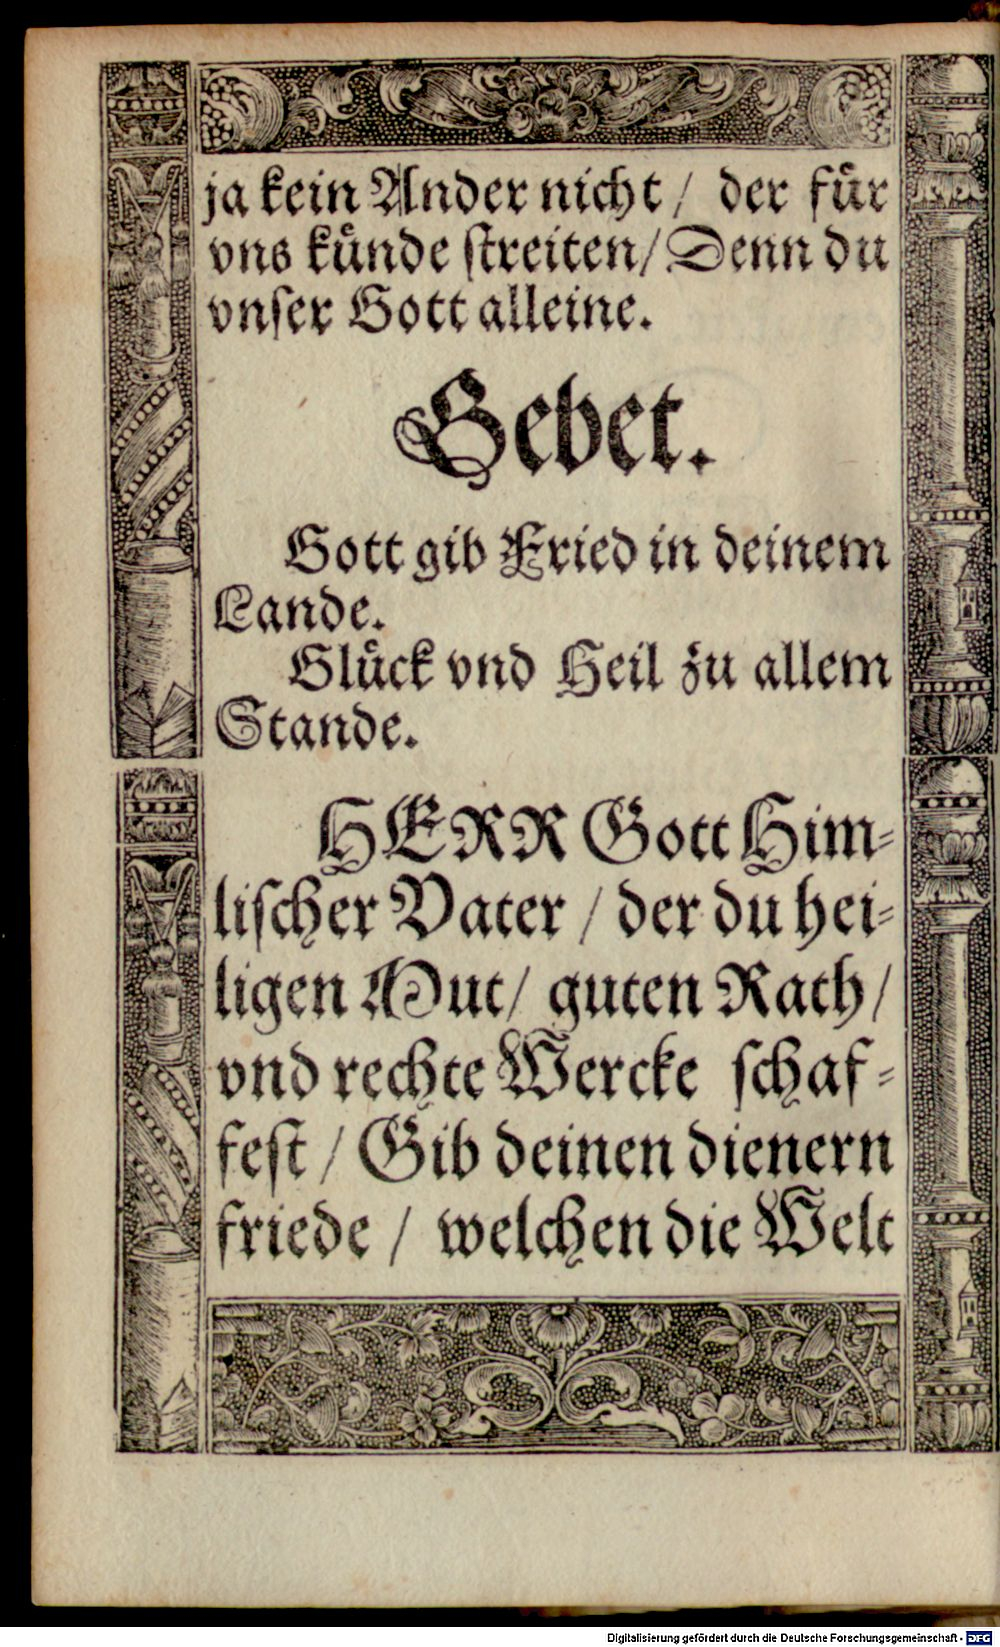 ja kein Ander nicht / der fuͤr
vns kuͤnde ſtreiten / Denn du
vnſer Gott alleine.
Gebet.
Gott gib Fried in deinem
Lande.
Gluͤck vnd Heil zu allem
Stande.
HERR Gott Him⸗
liſcher Vater / der du hei⸗
ligen Mut / guten Rath /
vnd rechte Wercke ſchaf⸗
feſt / Gib deinen dienern
friede / welchen die Welt
Digitalisierung gefördert durch die Deutsche Forschungsgemeinschaft - DFG